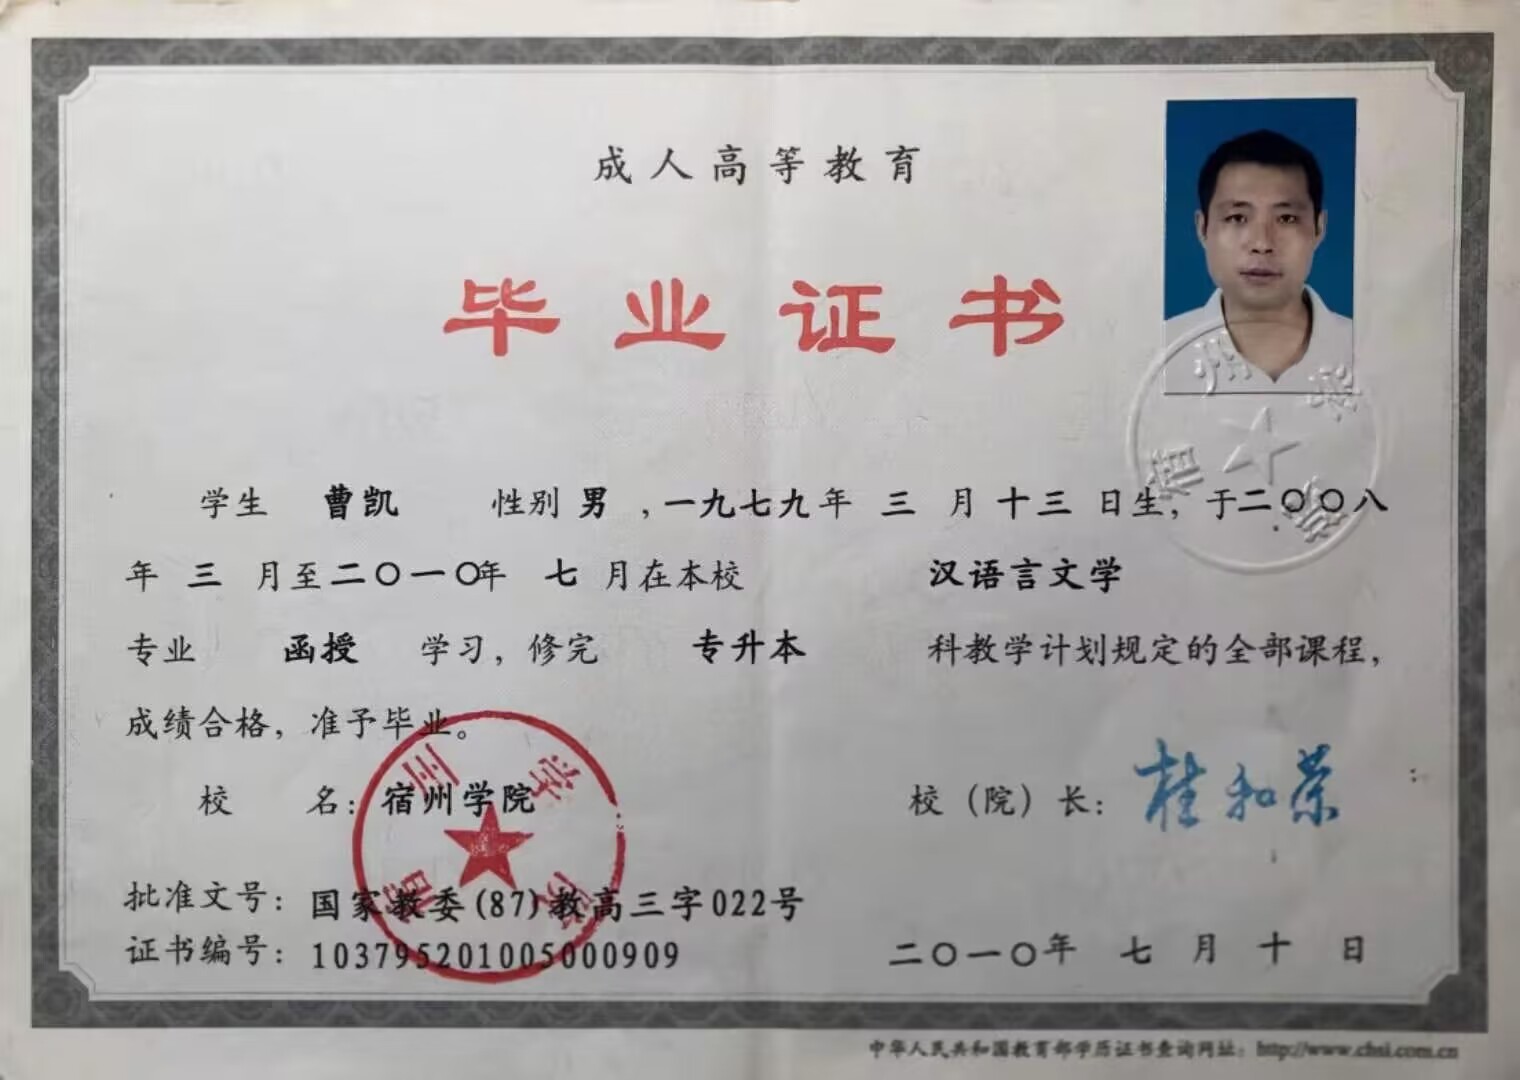 成人高等教育
毕业证书
学生 曹凯 性别 男 ，一九七九年 三 月 十三 日生，于二〇〇八
年 三 月至二〇一〇年 七 月在本校 汉语言文学
专业 函授 学习，修完 专升本 科教学计划规定的全部课程，
成绩合格，准予毕业。
校 名：宿州学院
校（院）长：桂和荣
批准文号：国家教委(87)教高三字022号
证书编号：103795201005000909
二〇一〇年 七 月 十 日
宿州学院
宿州学院
中华人民共和国教育部学历证书查询网址：http://www.chsi.com.cn